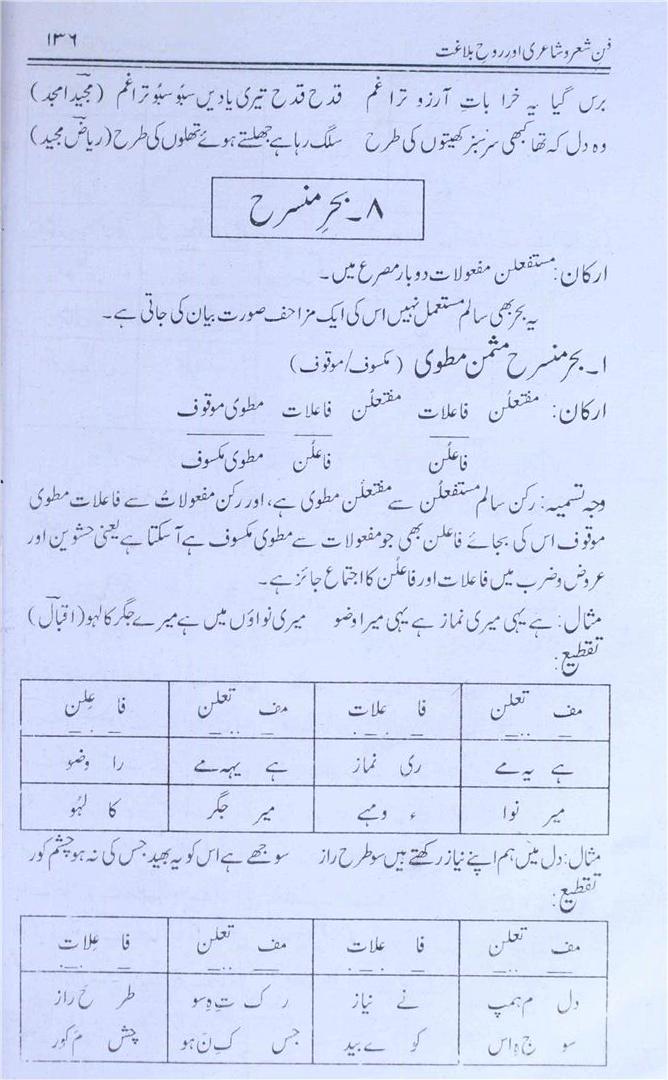 فنِ شعر و شاعری اور روحِ بلاغت ۱۳۶
برس گیا یہ خرا باتِ آرزو ترا غم قدح قدح تیری یادیں سبُو سبُو ترا غم (مجید امجد)
وہ دل کہ تھا کبھی سرسبز کھیتوں کی طرح سلگ رہا ہے جھلستے ہوئے تھلوں کی طرح (ریاض مجید)
۸۔ بحرِ منسرح
ارکان: مستفعلن مفعولات دوبار مصرع میں۔
یہ بحر بھی سالم مستعمل نہیں اس کی ایک مزاحف صورت بیان کی جاتی ہے۔
۱۔ بحر منسرح مثمن مطوی (مکسوف/موقوف)
ارکان: مفتعلُن فاعلات مفتعلُن فاعلات مطوی موقوف
فاعلُن فاعلُن مطوی مکسوف
وجہ تسمیہ: رکن سالم مستفعلُن سے مفتعلُن مطوی ہے، اور رکن مفعولاتُ سے فاعلات مطوی
موقوف اس کی بجائے فاعلن بھی جو مفعولات سے مطوی مکسوف ہے آسکتا ہے یعنی حشوین اور
عروض و ضرب میں فاعلات اور فاعلُن کا اجتماع جائز ہے۔
مثال: ہے یہی میری نماز ہے یہی میرا وضو میری نواؤں میں ہے میرے جگر کا لہو (اقبال)
تقطیع:
مف تعلن فا علات مف تعلن فا عِلن
ہے یہ مے ری نماز ہے یہہ مے را وضو
میر نوا ء ومہے میر جگر کا لہُو
مثال: دل میں ہم اپنے نیاز رکھتے ہیں سو طرح راز سوجھے ہے اس کو یہ بھید جس کی نہ ہو چشم کور
تقطیع:
مف تعلن فا علات مف تعلن فا عِلات
دل م ہمپ نے نیاز ر ک تِ ہِ سو طر حَ راز
سو ج ہِ اس کو ے بید جس کِ نَ ہو چش مُ کور